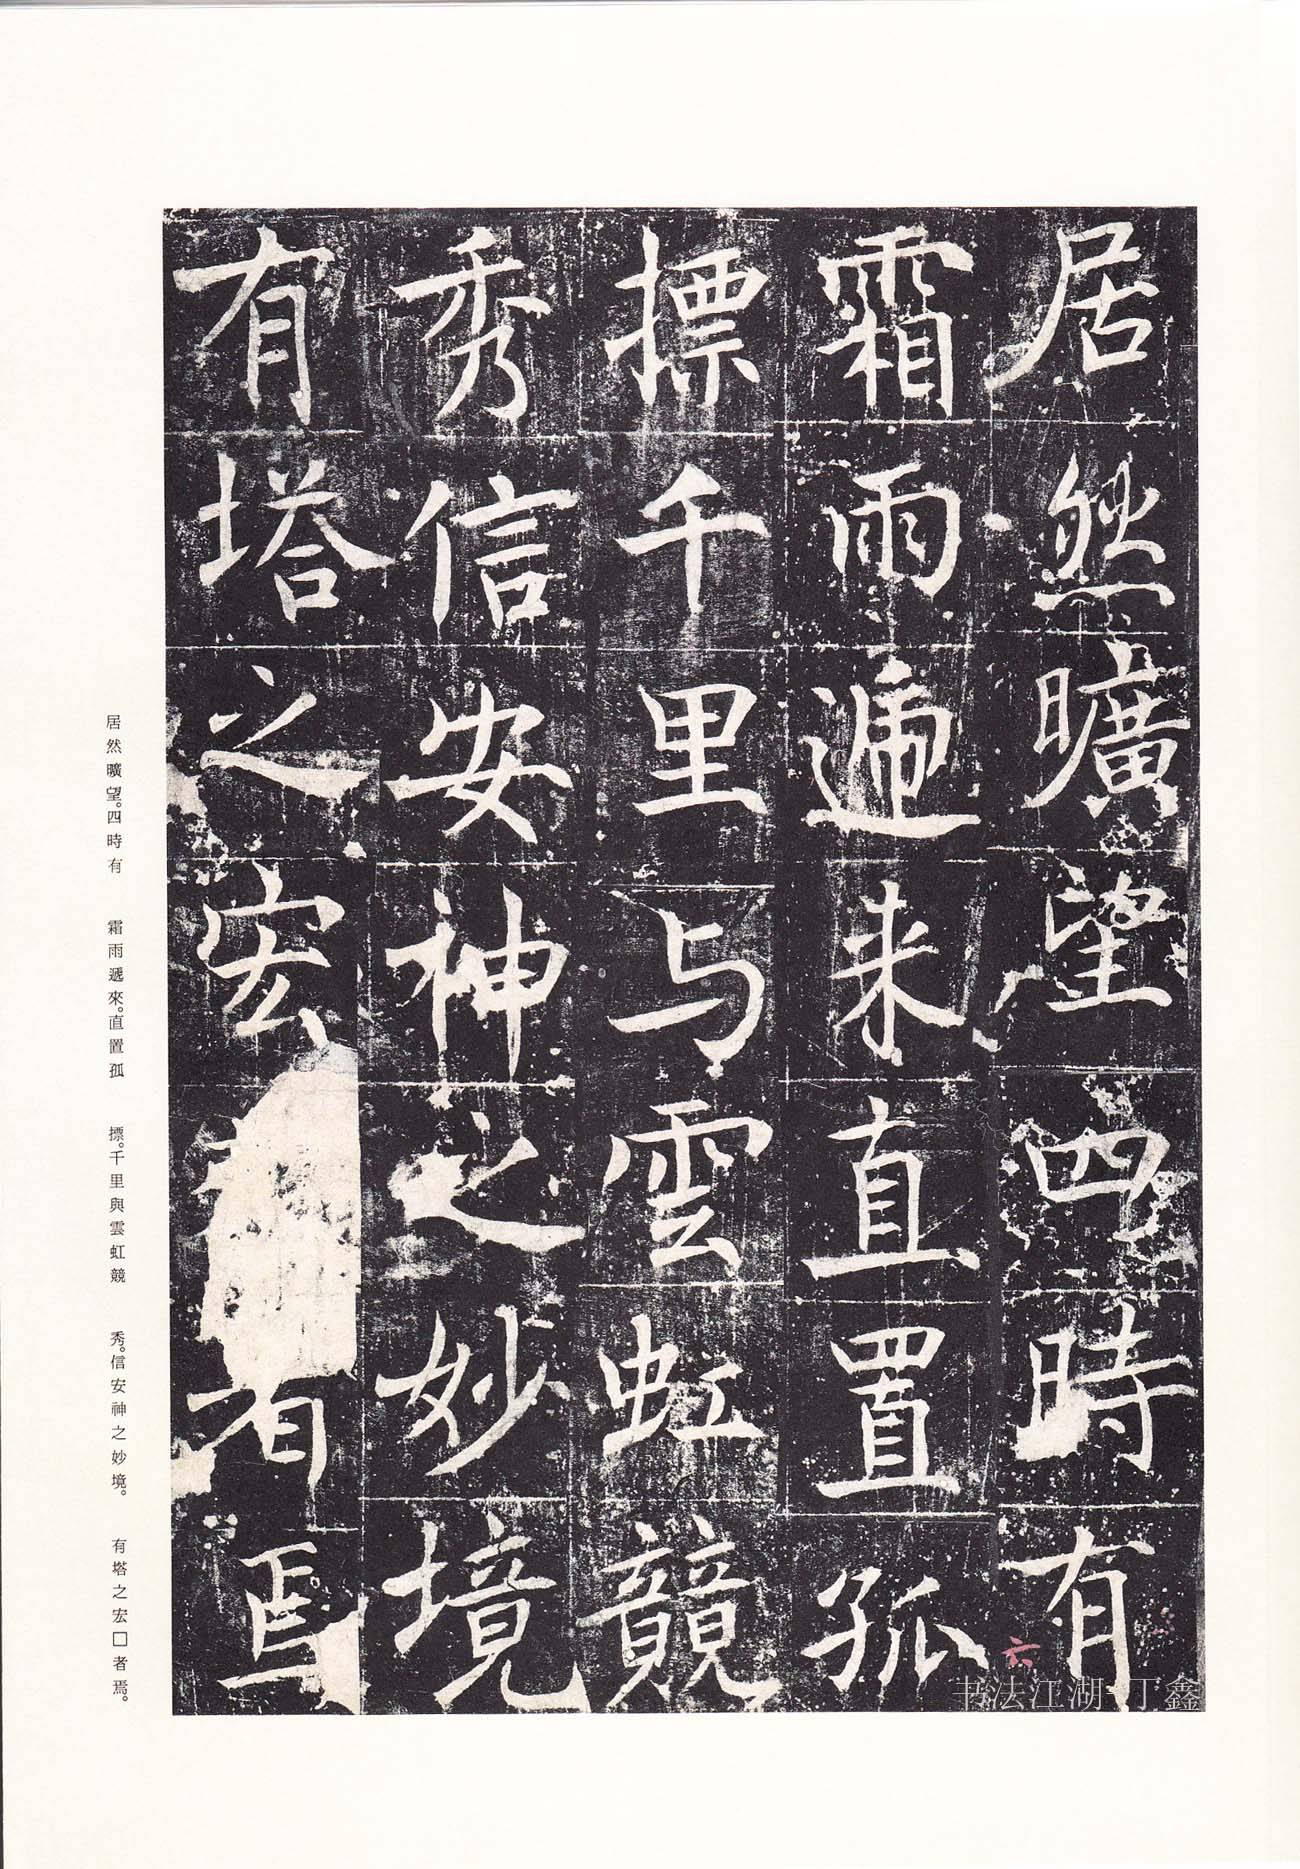 居然曠望四時有
霜雨遞来直置孤
摽千里与雲虹競
秀信安神之妙境
有塔之宏者焉
六
书法江湖 丁鑫
居然曠望。四時有
霜雨遞來。直置孤
摽。千里與雲虹競
秀。信安神之妙境。
有塔之宏□者焉。